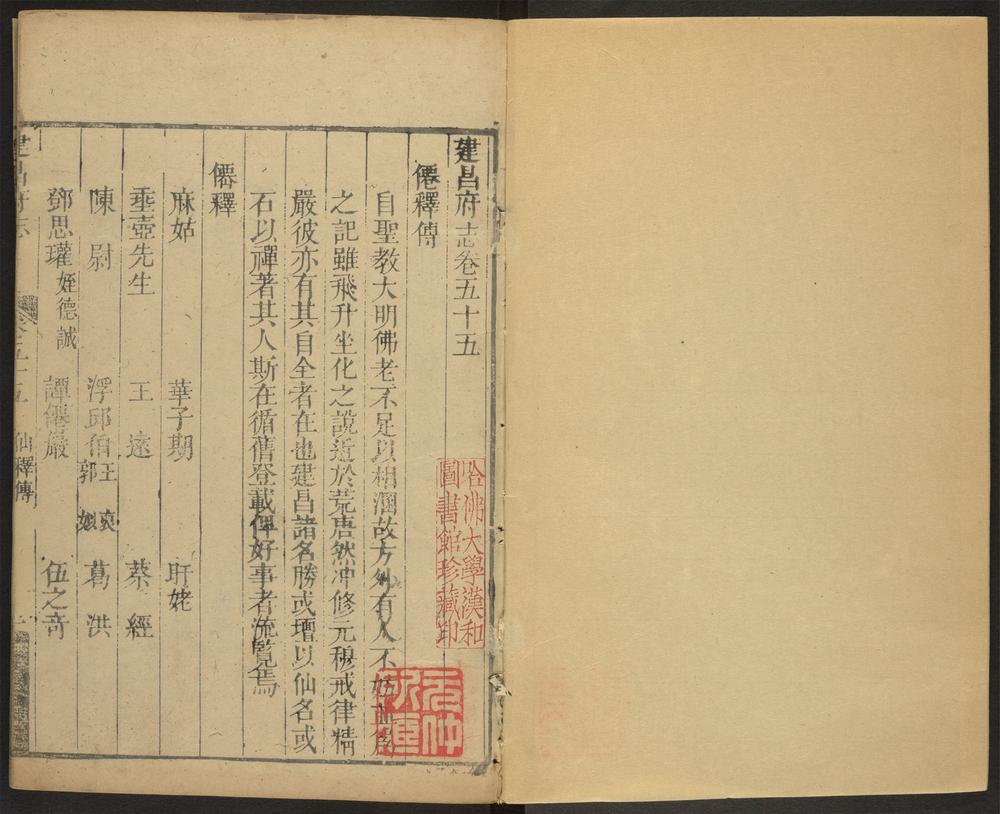 建昌府志卷五十五
僊釋傳
自聖教大明佛老不足以相溷故方外有人不妨並爲
之記雖飛升坐化之說近於荒唐然冲修元穆戒律精
嚴彼亦有其自全者在也建昌諸名勝或壇以仙名或
石以禪著其人斯在循舊登載俾好事者流覽焉
僊釋
麻姑 華子期 盱姥
垂壺先生 王遠 蔡經
陳尉 浮邱伯 王郭 葛洪
鄧思瓘 姪德誠 譚僊巖 伍之奇
建昌府志 卷五十五 仙釋傳 一
哈佛大學漢和
圖書館珍藏印